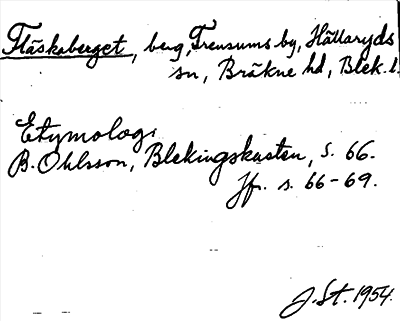 Fläskaberget, berg, Trensums by, Hällaryds
sn, Bräkne hd, Blek. l.
Etymologi
B. Ohlsson, Blekingskusten, s. 66.
Jfr. s. 66-69.
J. St. 1954.